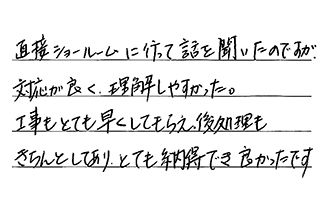 直接ショールームに行って話を聞いたのですが、
対応が良く、理解しやすかった。
工事もとても早くしてもらえ、後処理も
きちんとしてあり、とても納得でき良かったです